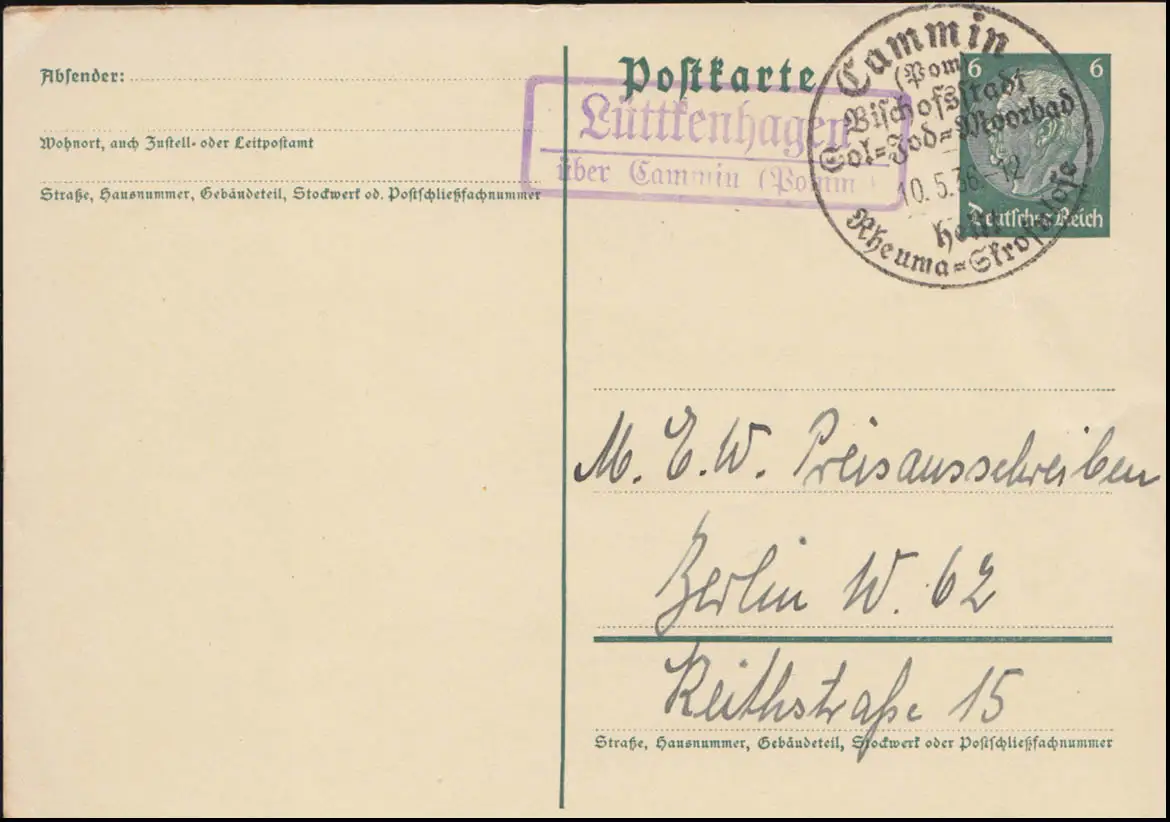 Absender:
Wohnort, auch Zustell- oder Leitpostamt
Straße, Hausnummer, Gebäudeteil, Stockwerk od. Postschließfachnummer
Postkarte
Lüttkenhagen
über Cammin (Pomm.)
Cammin
(Pom)
Bischofsstadt
Sol=Jod=Moorbad
10.5.36.-12
heilt
Rheuma=Skrofulose
6 6
Deutsches Reich
M. E. W. Preisausschreiben
Berlin W. 62
Keithstraße 15
Straße, Hausnummer, Gebäudeteil, Stockwerk oder Postschließfachnummer